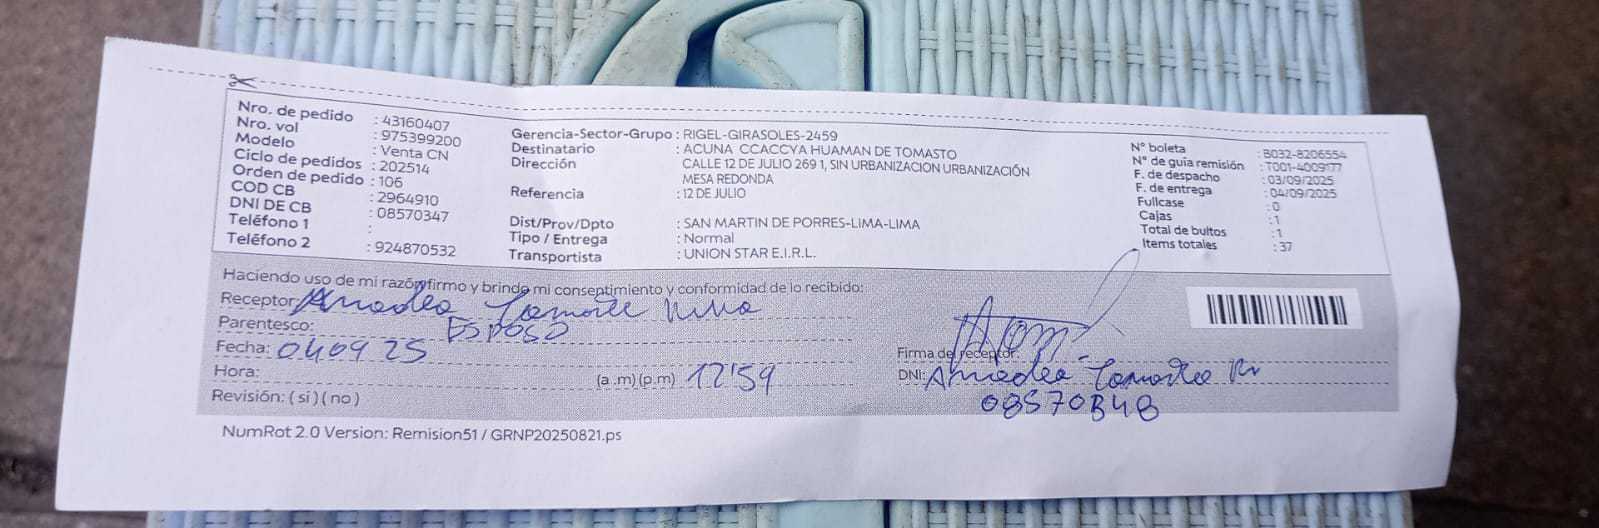 Nro. de pedido : 43160407
Nro. vol : 975399200
Modelo : Venta CN
Ciclo de pedidos : 202514
Orden de pedido : 106
COD CB : 2964910
DNI DE CB : 08570347
Teléfono 1 :
Teléfono 2 : 924870532
Gerencia-Sector-Grupo : RIGEL-GIRASOLES-2459
Destinatario : ACUNA CCACCYA HUAMAN DE TOMASTO
Dirección : CALLE 12 DE JULIO 269 1, SIN URBANIZACION URBANIZACIÓN
MESA REDONDA
Referencia : 12 DE JULIO
Dist/Prov/Dpto : SAN MARTIN DE PORRES-LIMA-LIMA
Tipo / Entrega : Normal
Transportista : UNION STAR E.I.R.L.
N° boleta : B032-8206554
N° de guía remisión : T001-4009177
F. de despacho : 03/09/2025
F. de entrega : 04/09/2025
Fullcase : 0
Cajas : 1
Total de bultos : 1
Items totales : 37
Haciendo uso de mi razón firmo y brindo mi consentimiento y conformidad de lo recibido:
Receptor: Amadeo
Parentesco: ESPOSO
Fecha: 040925
Hora: (a .m) (p.m) 12'59
Revisión: ( si ) ( no )
Firma de receptor:
DNI: Amadeo
08570348
NumRot 2.0 Version: Remision51 / GRNP20250821.ps